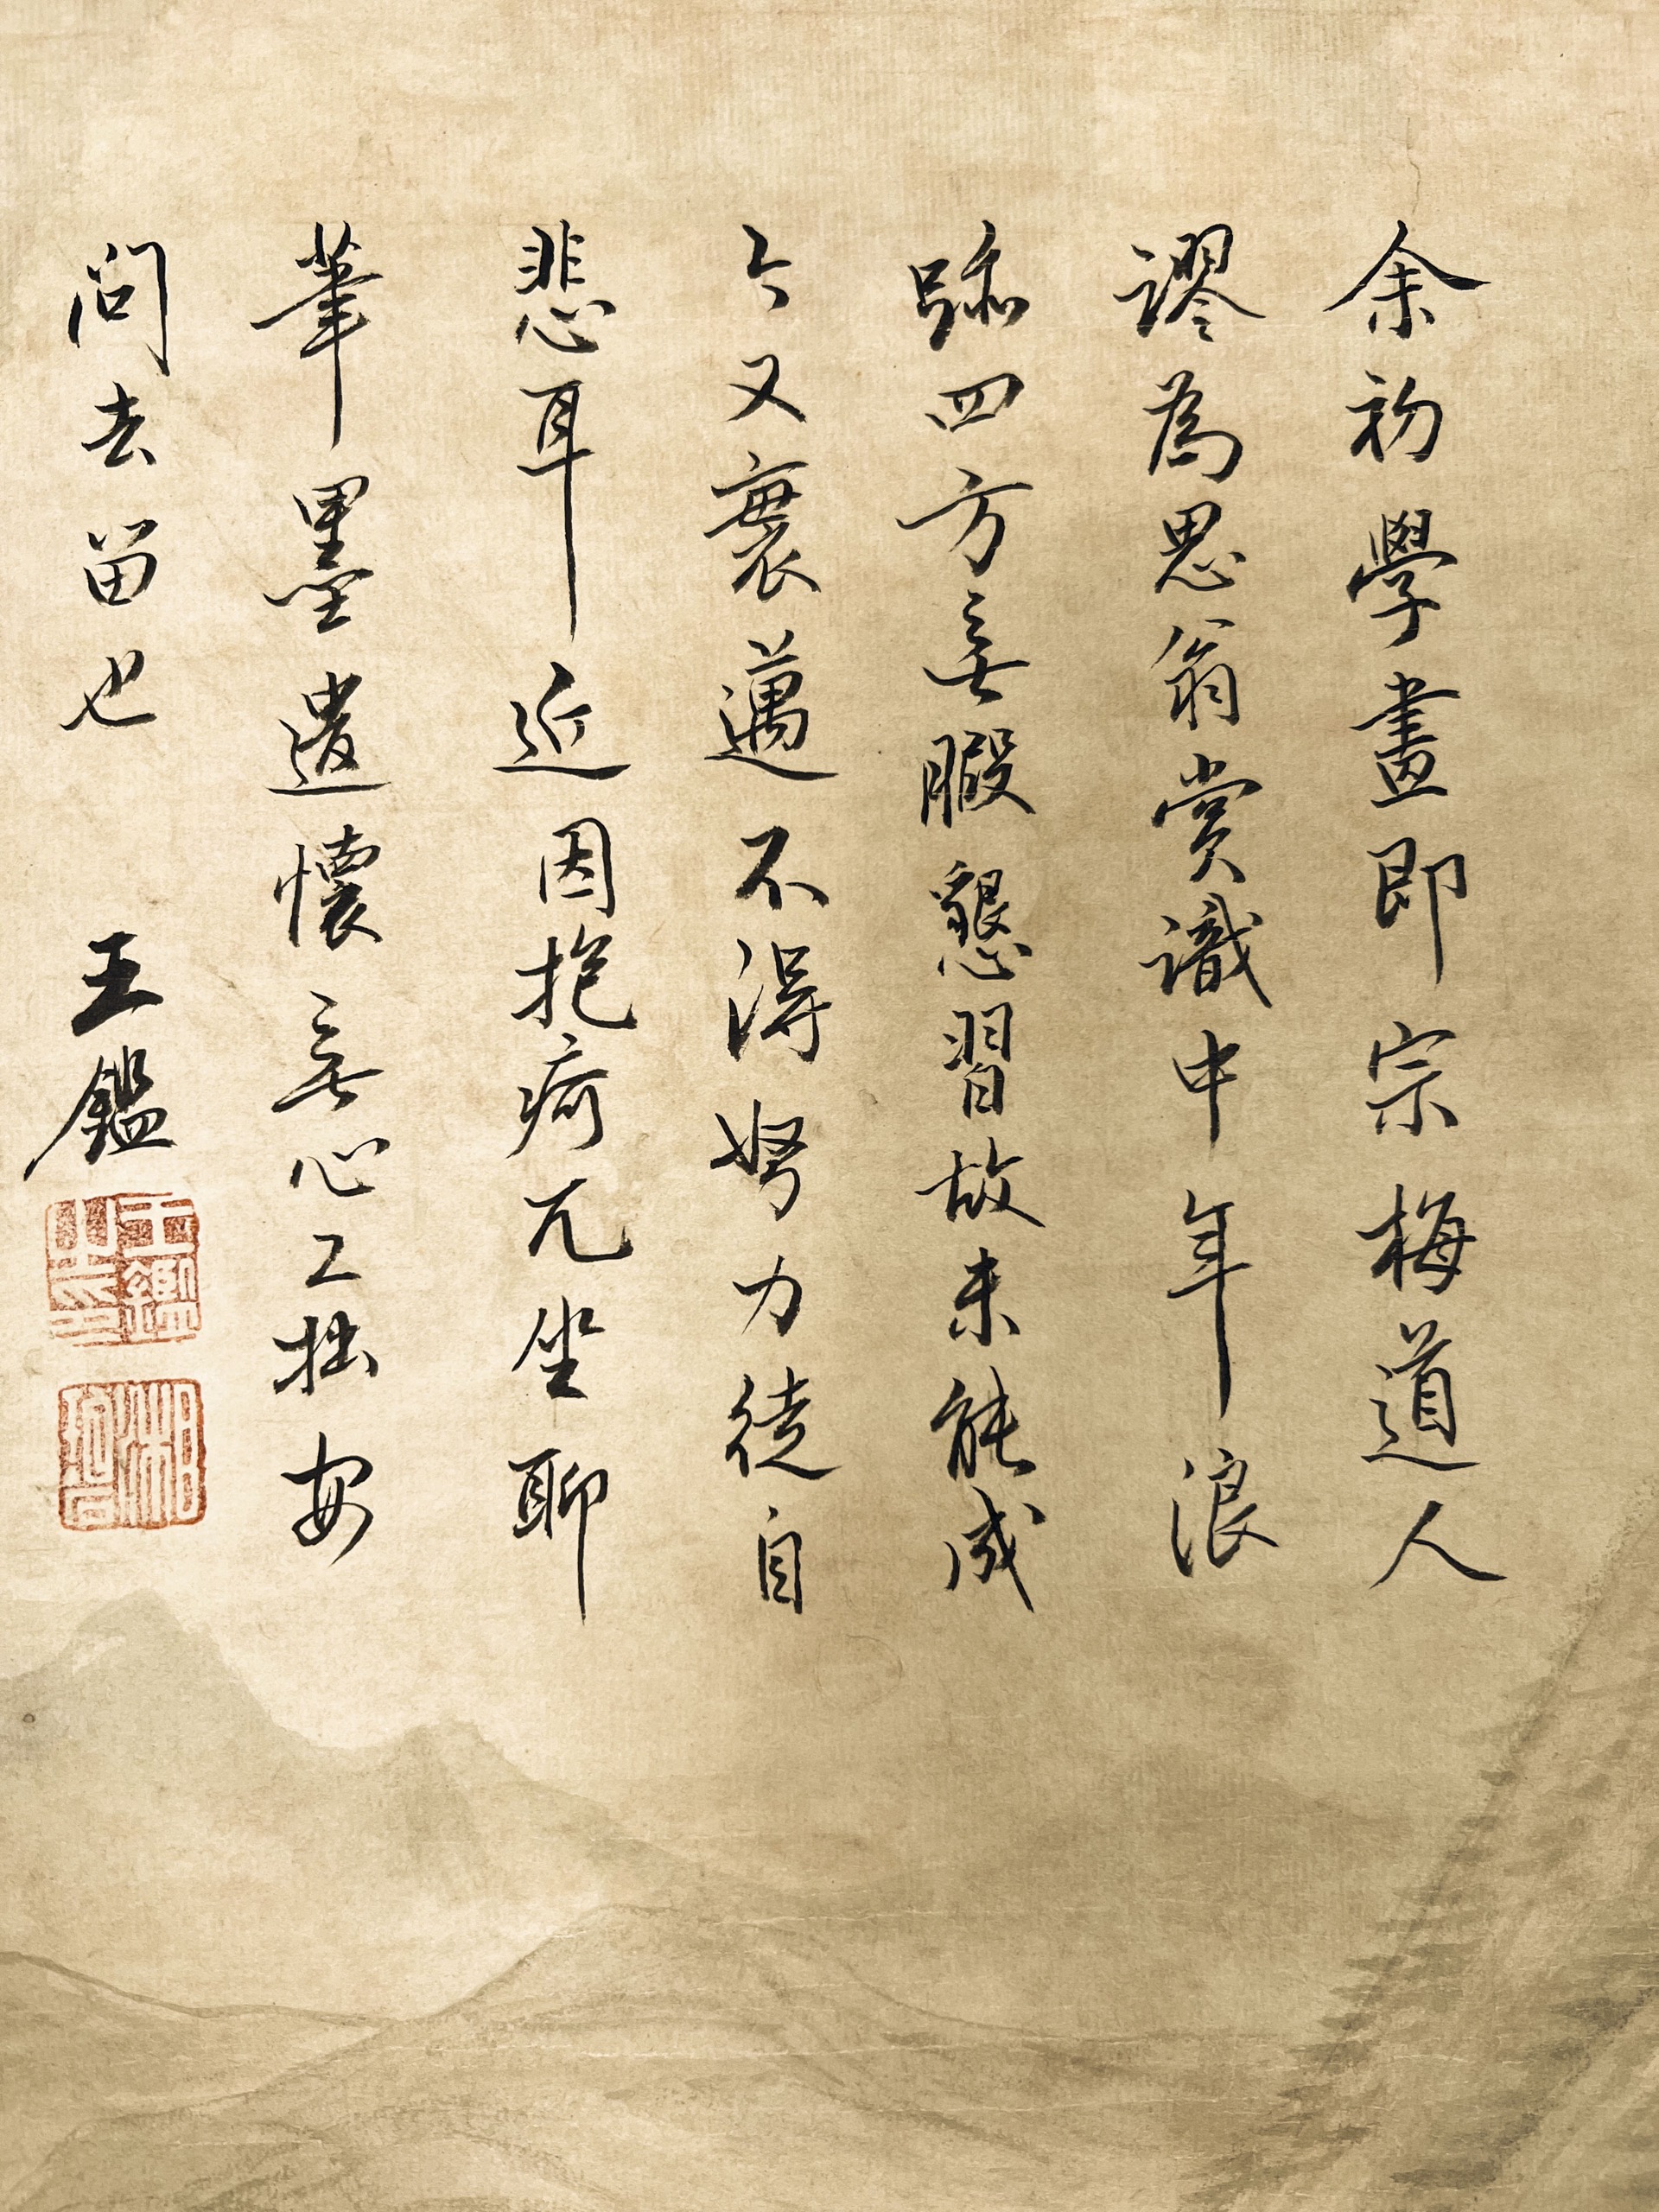 余初學畫即宗梅道人
謬為思翁賞識中年浪
跡四方無暇懇習故未能成
今又衰邁不得努力徒自
悲耳近因抱疴兀坐聊
筆墨遣懷無心工拙安
問去留也 王鑑
王鑑之印
湘碧